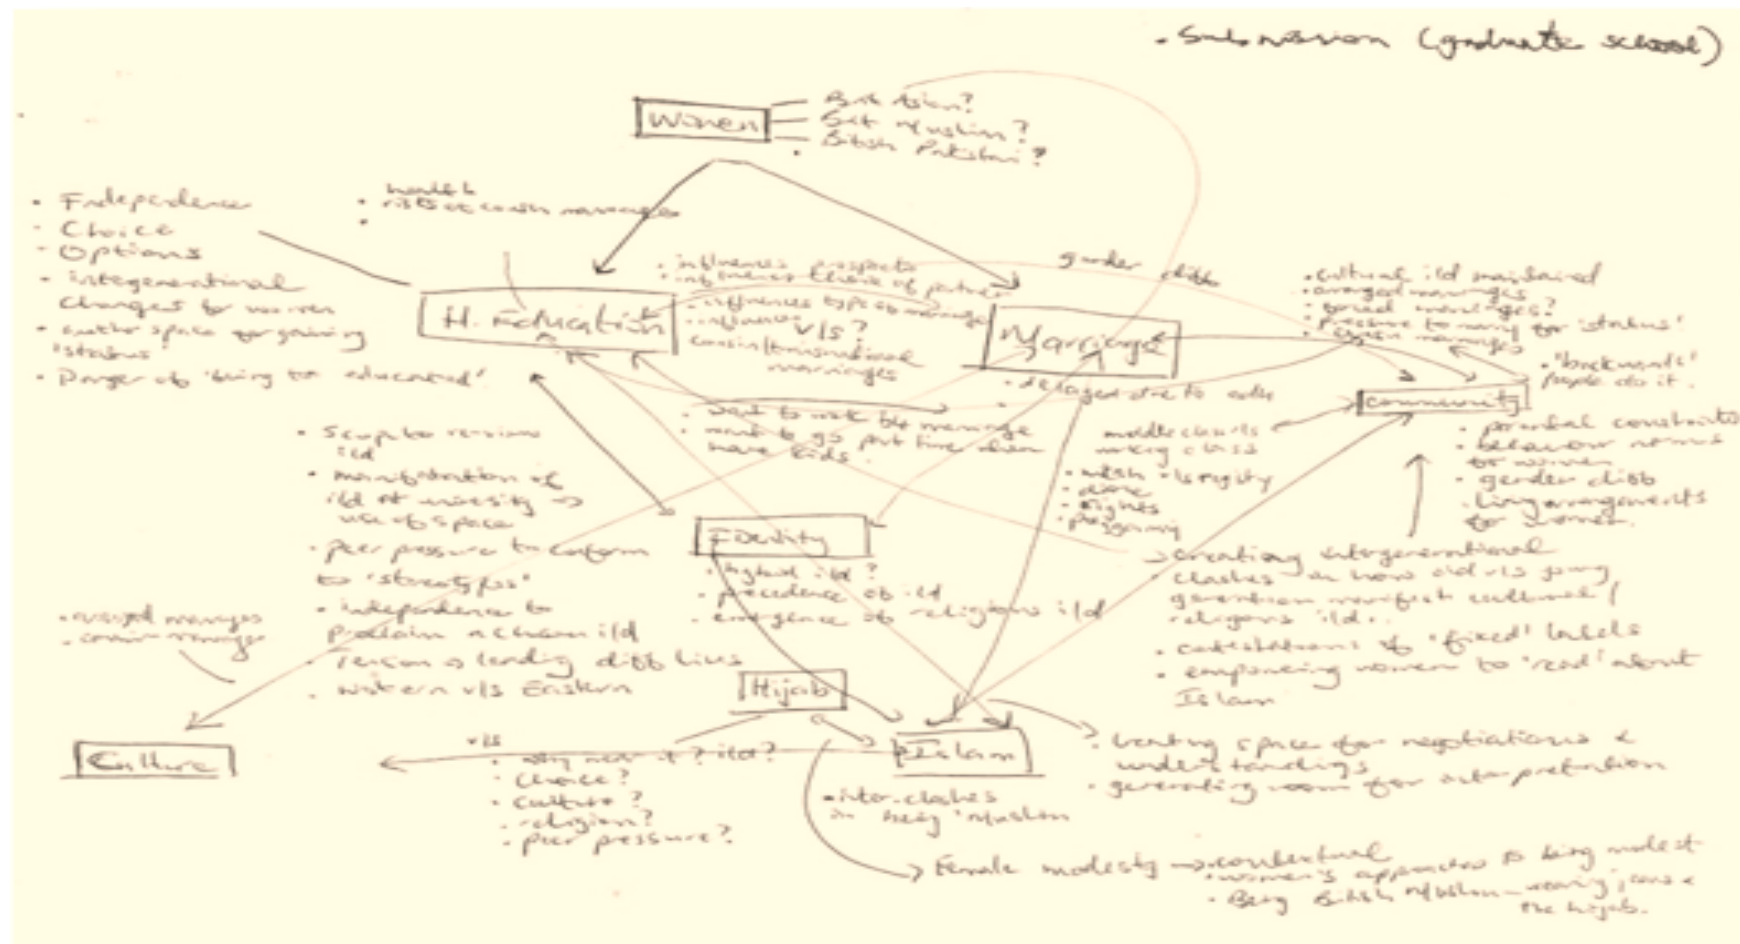 . Submission (graduate school)
Women
Brit Asian?
Brit Muslim?
British Pakistani?
• Independence
- Choice
- Options
• intergenerational
changes for women
• another space for gaining
'status'
• Danger of 'being too educated'
health
• risks of cousin marriages
H. Education
• influences prospects
• influences choice of partner
• influences type of marriage
• influences v/s?
cousin/transnational
marriages
gender diffs
Marriage
• delayed due to edu
• cultural i/d maintained
• arranged marriages
• forced marriages?
• pressure to marry for 'status'
• cousin marriages
• 'backwards'
people do it.
Community
• parental constraints
• behaviour norms
for women
• gender diffs
• living arrangements
for women.
middle class v/s
working class
• want to work b4 marriage
• want to go part time when
have kids.
• Scope to
i/d
• manifestation of
i/d at university →
use of space
• peer pressure to conform
to 'stereotypes'
• independence to
proclaim a chosen i/d
• Tension → leading diff lives
• western v/s Eastern
Identity
• hybrid i/d?
• precedence of i/d
• emergence of religious i/d
• izzat
• rights
→ creating intergenerational
• clashes in how old v/s young
generation manifest cultural/
religious i/d..
• contestations of 'fixed' labels
• empowering women to 'read' about
Islam
• cousin marriage
Culture
Hijab
v/s
• why wear it? i/d?
• choice?
• culture?
• religion?
• peer pressure?
Islam
• inter-clashes
in being 'Muslim
• creating space for negotiations &
understandings
• generating room for interpretation
→ Female modesty → • contextual
• women's approaches to being modest
• Being British Muslim – wearing jeans &
the hijab.